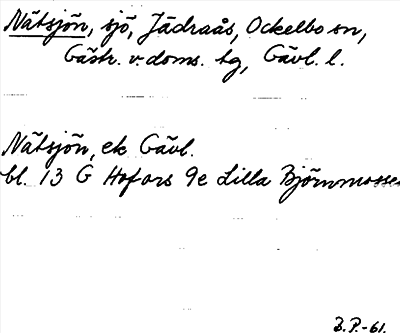 Nätsjön, sjö, Jädraås, Ockelbo sn,
Gästr. v. doms. tg, Gävl. l.
Nätsjön, ek Gävl.
bl. 13 G Hofors 9e Lilla Björnmossen
B.P.-61.